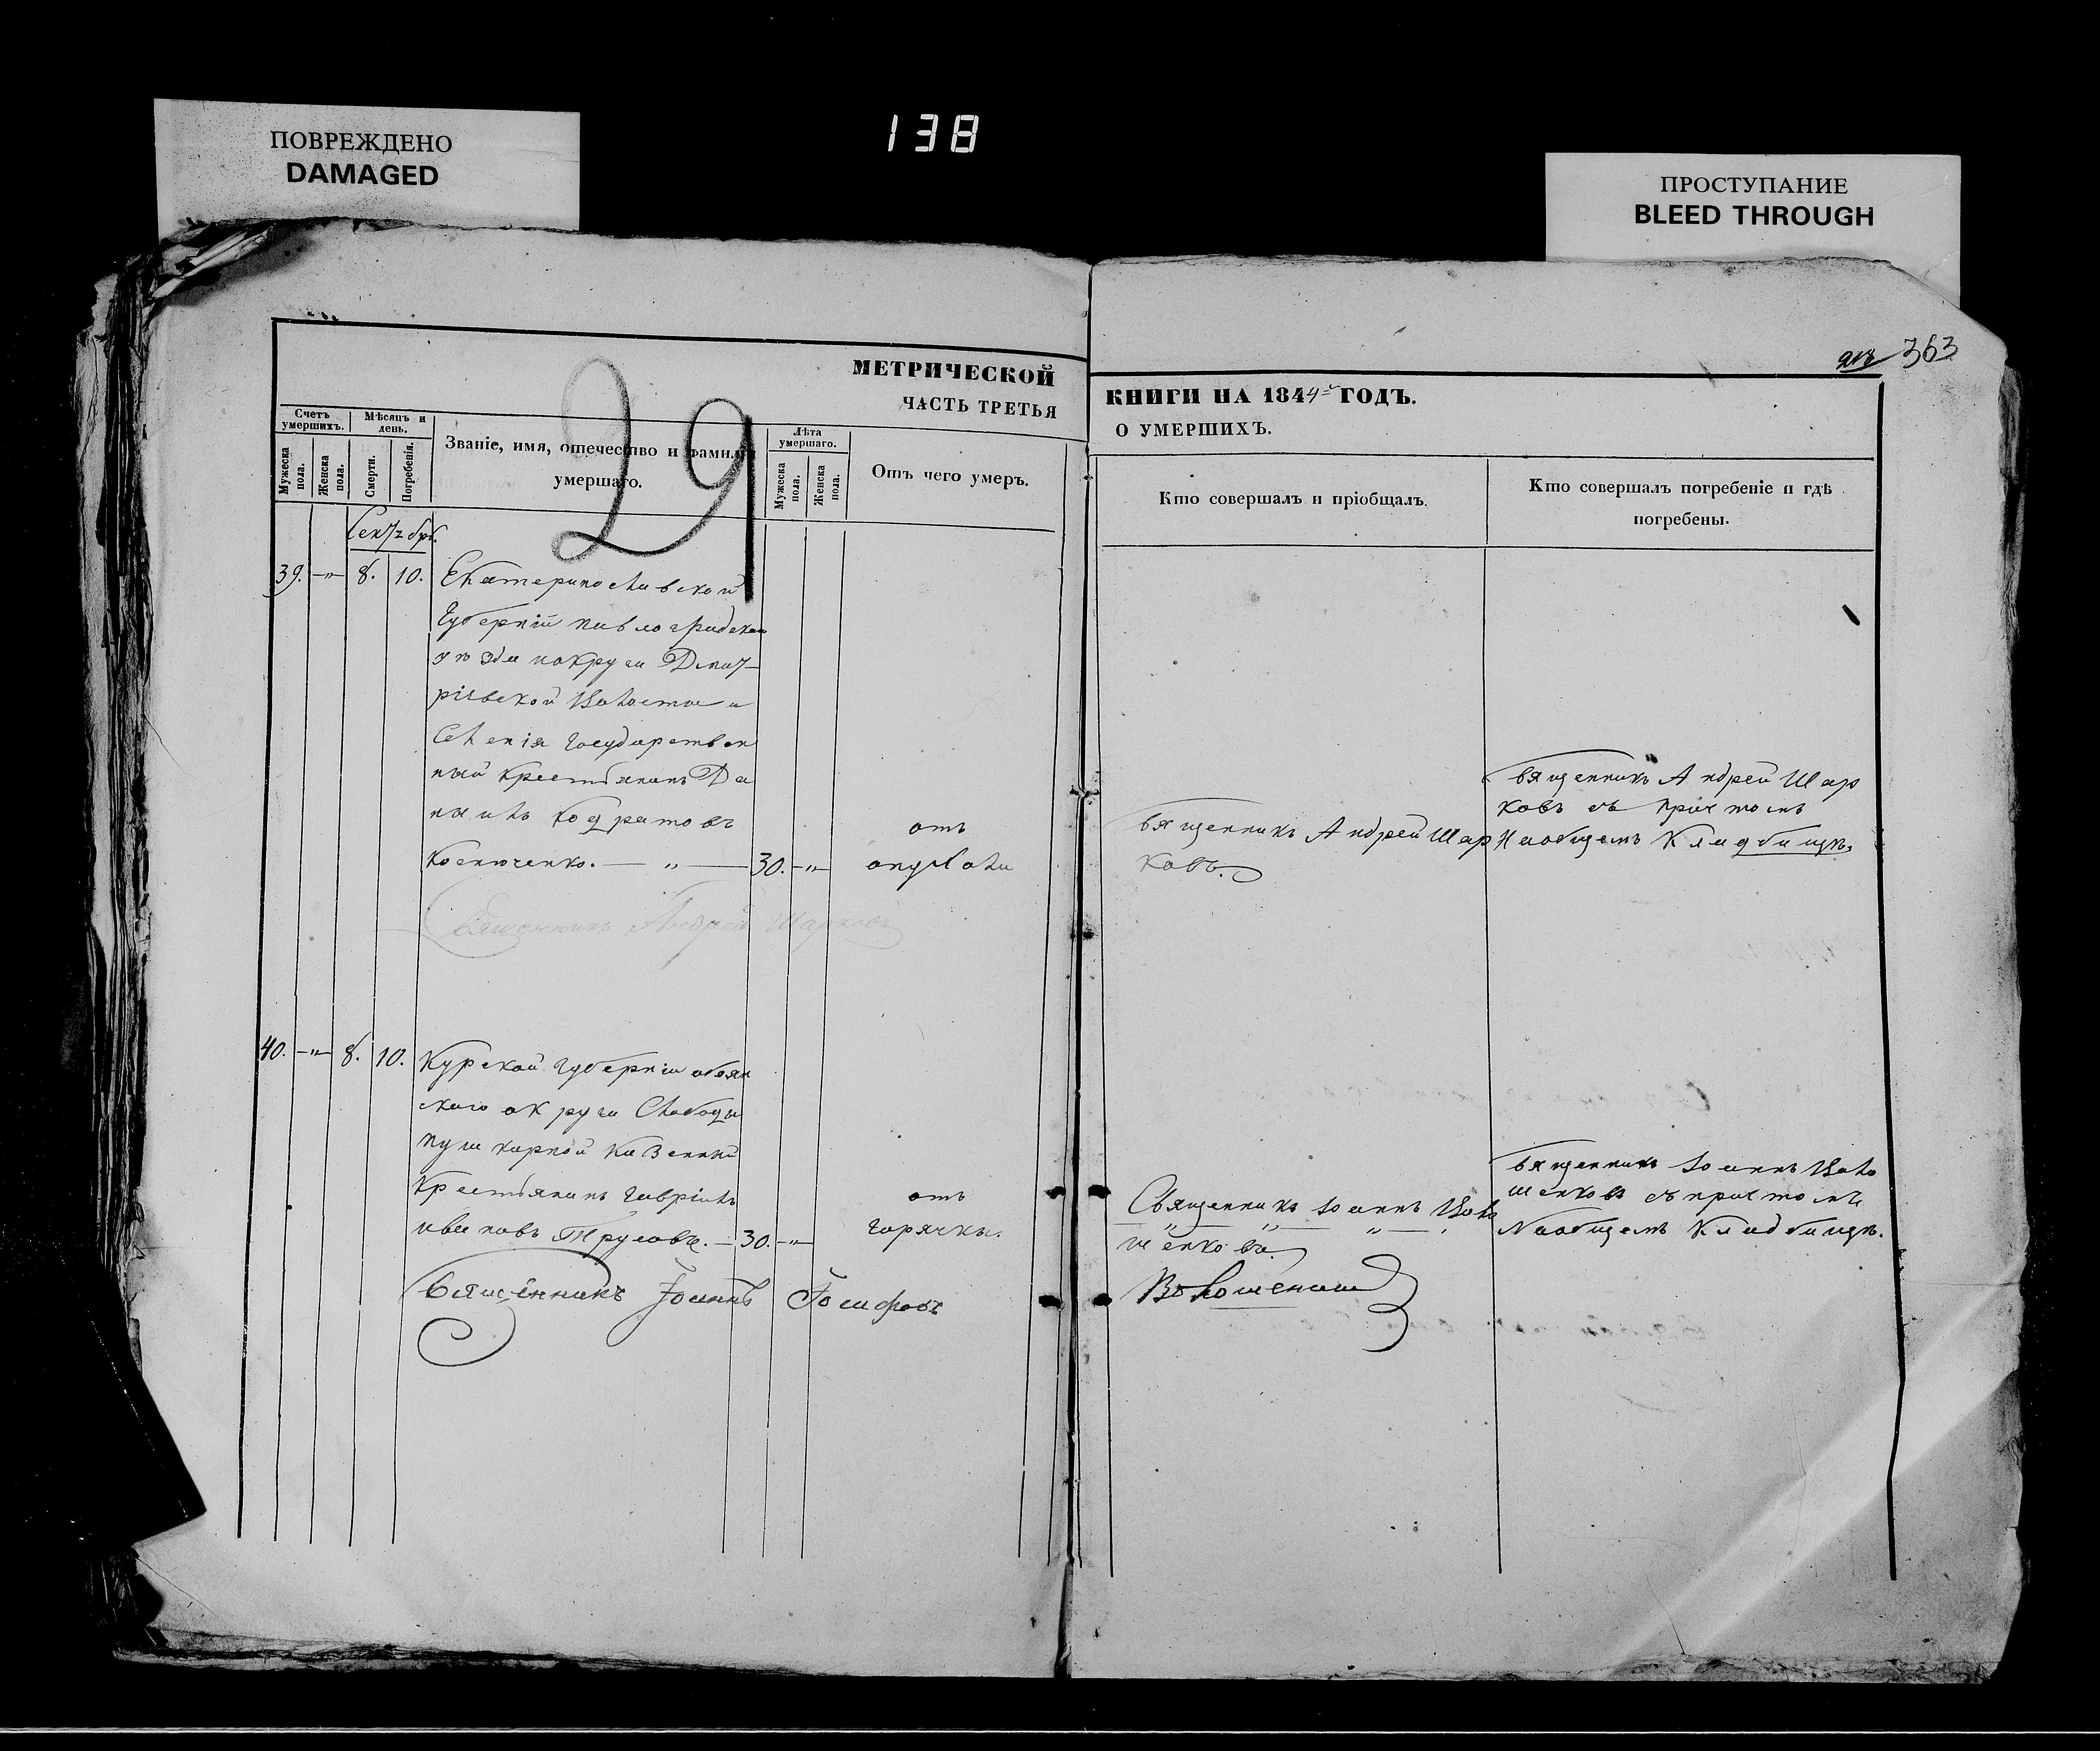 ПОВРЕЖДЕНО
DAMAGED
138
ПРОСТУПАНИЕ
BLEED THROUGH
363
29
МЕТРИЧЕСКОЙ
КНИГИ НА 1844 ГОДЪ.
ЧАСТЬ ТРЕТЬЯ
О УМЕРШИХЪ.
Счетъ умершихъ.
Мужеска пола.
Женска пола.
Мѣсяцъ и день.
Смерти.
Погребенія.
Званіе, имя, отечество и фамилія
умершаго.
Лѣта умершаго.
Мужеска пола.
Женска пола.
Отъ чего умеръ.
Кто совершалъ и пріобщалъ.
Кто совершалъ погребеніе и гдѣ
погребены.
39. —"— 8. 10. Екатеринославской
Губерніи Павлоградскаго
Дмит-
ріевской Волости и
Селенія государствен
ный крестьянинъ Да
нилъ Кодратовъ
Костюченко. — " — 30. —"—
отъ
опухоли
Священникъ Андрей Шар
ковъ.
Священникъ Андрей Шар
ковъ съ причтомъ
На общемъ Кладбищѣ.
Священникъ Андрей Шарковъ
40. —"— 8. 10. Курской губерніи обоян
скаго округа Слободы
Пушкарной Казенный
Крестьянинъ Гавріилъ
ивановъ — 30. —"—
отъ
горячки.
Священникъ Іоаннъ Воло
шенковъ.
Священникъ Іоаннъ Воло
шенковъ съ причтомъ
На общемъ Кладбищѣ.
Священникъ Іоаннъ